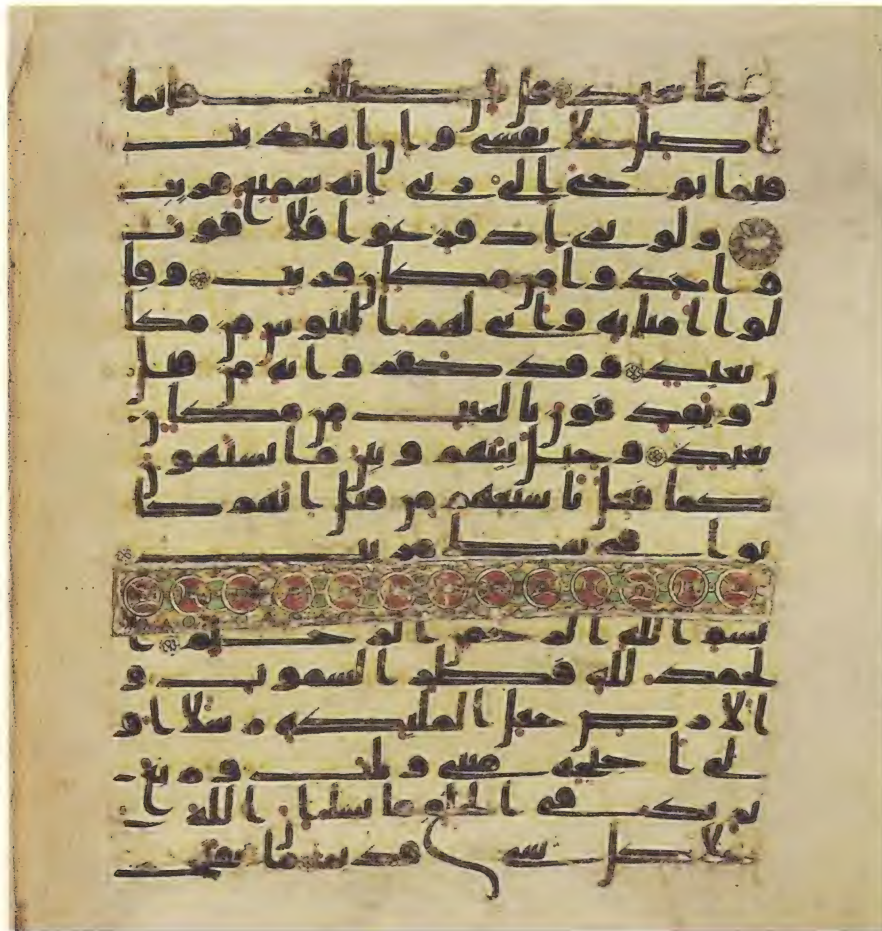 وما يعيد قل ان ضللت فانما
اضل على نفسي وان اهتديت
فبما يوحى الي ربي انه سميع قريب
ولو ترى اذ فزعوا فلا فوت
واخذوا من مكان قريب وقا
لوا امنا به وانى لهم التناوش من مكا
ن بعيد وقد كفروا به من قبل
ويقذفون بالغيب من مكان
بعيد وحيل بينهم وبين ما يشتهون
كما فعل باشيعهم من قبل انهم كا
نوا في شك مريب
بسم الله الرحمن الرحيم ا
لحمد لله فطر السموت و
الارض جعل المليكه رسلا او
لي اجنحه مثنى وثلث وربع
يزيد في الخلق ما يشا ان الله
على كل شي قدير ما يفتح